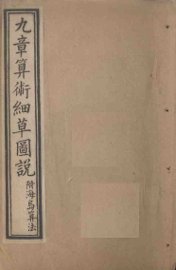 九章算術細草圖說
附海島算法